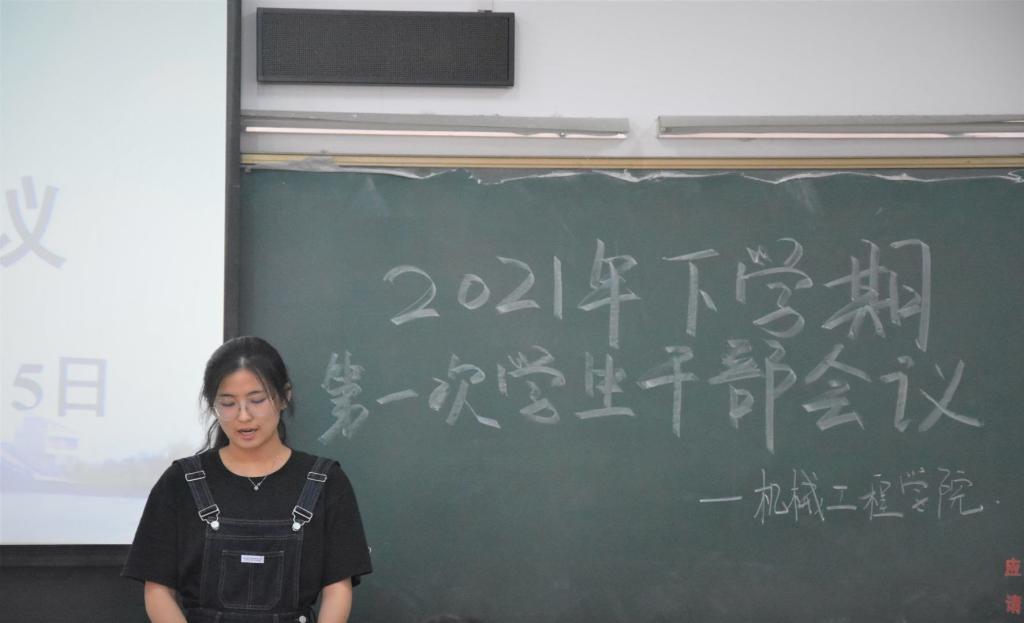 议
5日
2021年下学期
第一次学生干部会议
—机械工程学院.
应
请